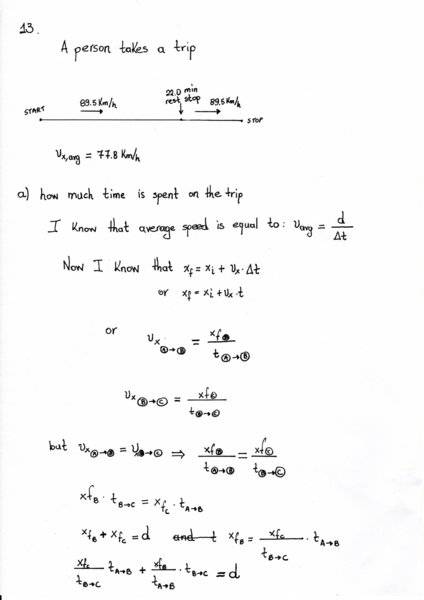 13.
A person takes a trip
START 89.5 Km/h 22.0 min rest stop 89.5 Km/h STOP
υx,avg = 77.8 Km/h
a) how much time is spent on the trip
I know that average speed is equal to: υavg = d / Δt
Now I know that xf = xi + υx · Δt
or xf = xi + υx · t
or υx Ⓐ→Ⓑ = xfⒷ / tⒶ→Ⓑ
υx Ⓑ→Ⓒ = xfⒸ / tⒷ→Ⓒ
but υxⒶ→Ⓑ = υxⒷ→Ⓒ ⇒ xfⒷ / tⒶ→Ⓑ = xfⒸ / tⒷ→Ⓒ
xfB · tB→C = xfC · tA→B
xfB + xfC = d and t xfB = xfC / tB→C · tA→B
xfC / tB→C · tA→B + xfB / tA→B · tB→C = d